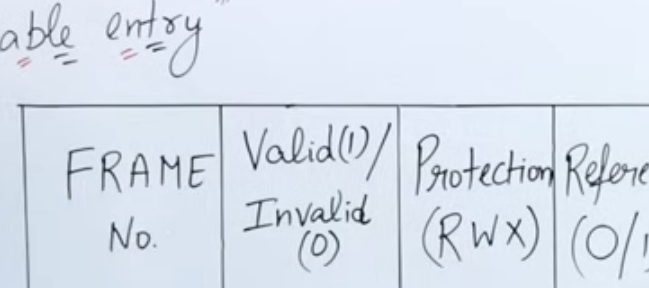 entry
FRAME
No.
Valid(1)/
Invalid
(0)
Protection
(RWX)
(0/